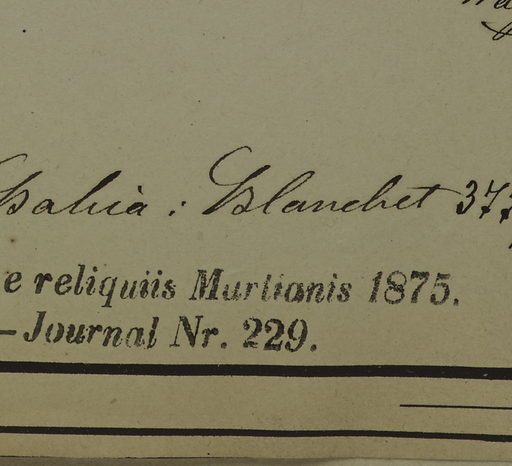 Bahia : Blanchet 377
e reliquiis Martianis 1875.
—Journal Nr. 229.